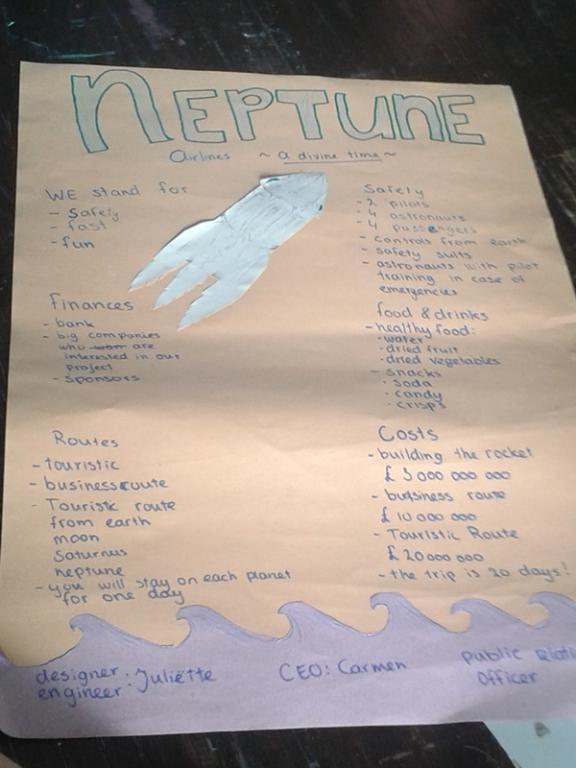 NEPTUNE
Airlines ~ a divine time ~
WE stand for
- Safety
- fast
- fun
finances
- bank
- big companies
who are
interested in our
project
- Sponsors
Safety
- 2 pilots
- 4 astronauts
- 4 passengers
- controls from earth
- safety suits
- astronauts with pilot
training in case of
emergencies
food & drinks
- healthy food:
· water
· dried fruit
· dried vegetables
- snacks
· soda
· candy
· crisps
Routes
- touristic
- business route
- Touristic route
from earth
moon
Saturnus
neptune
- you will stay on each planet
for one day
Costs
- building the rocket
£ 3 000 000 000
- business route
£ 10 000 000
- Touristic Route
£ 20 000 000
- the trip is 20 days!
designer
engineer : Juliëtte
CEO: Carmen
Public
Officer